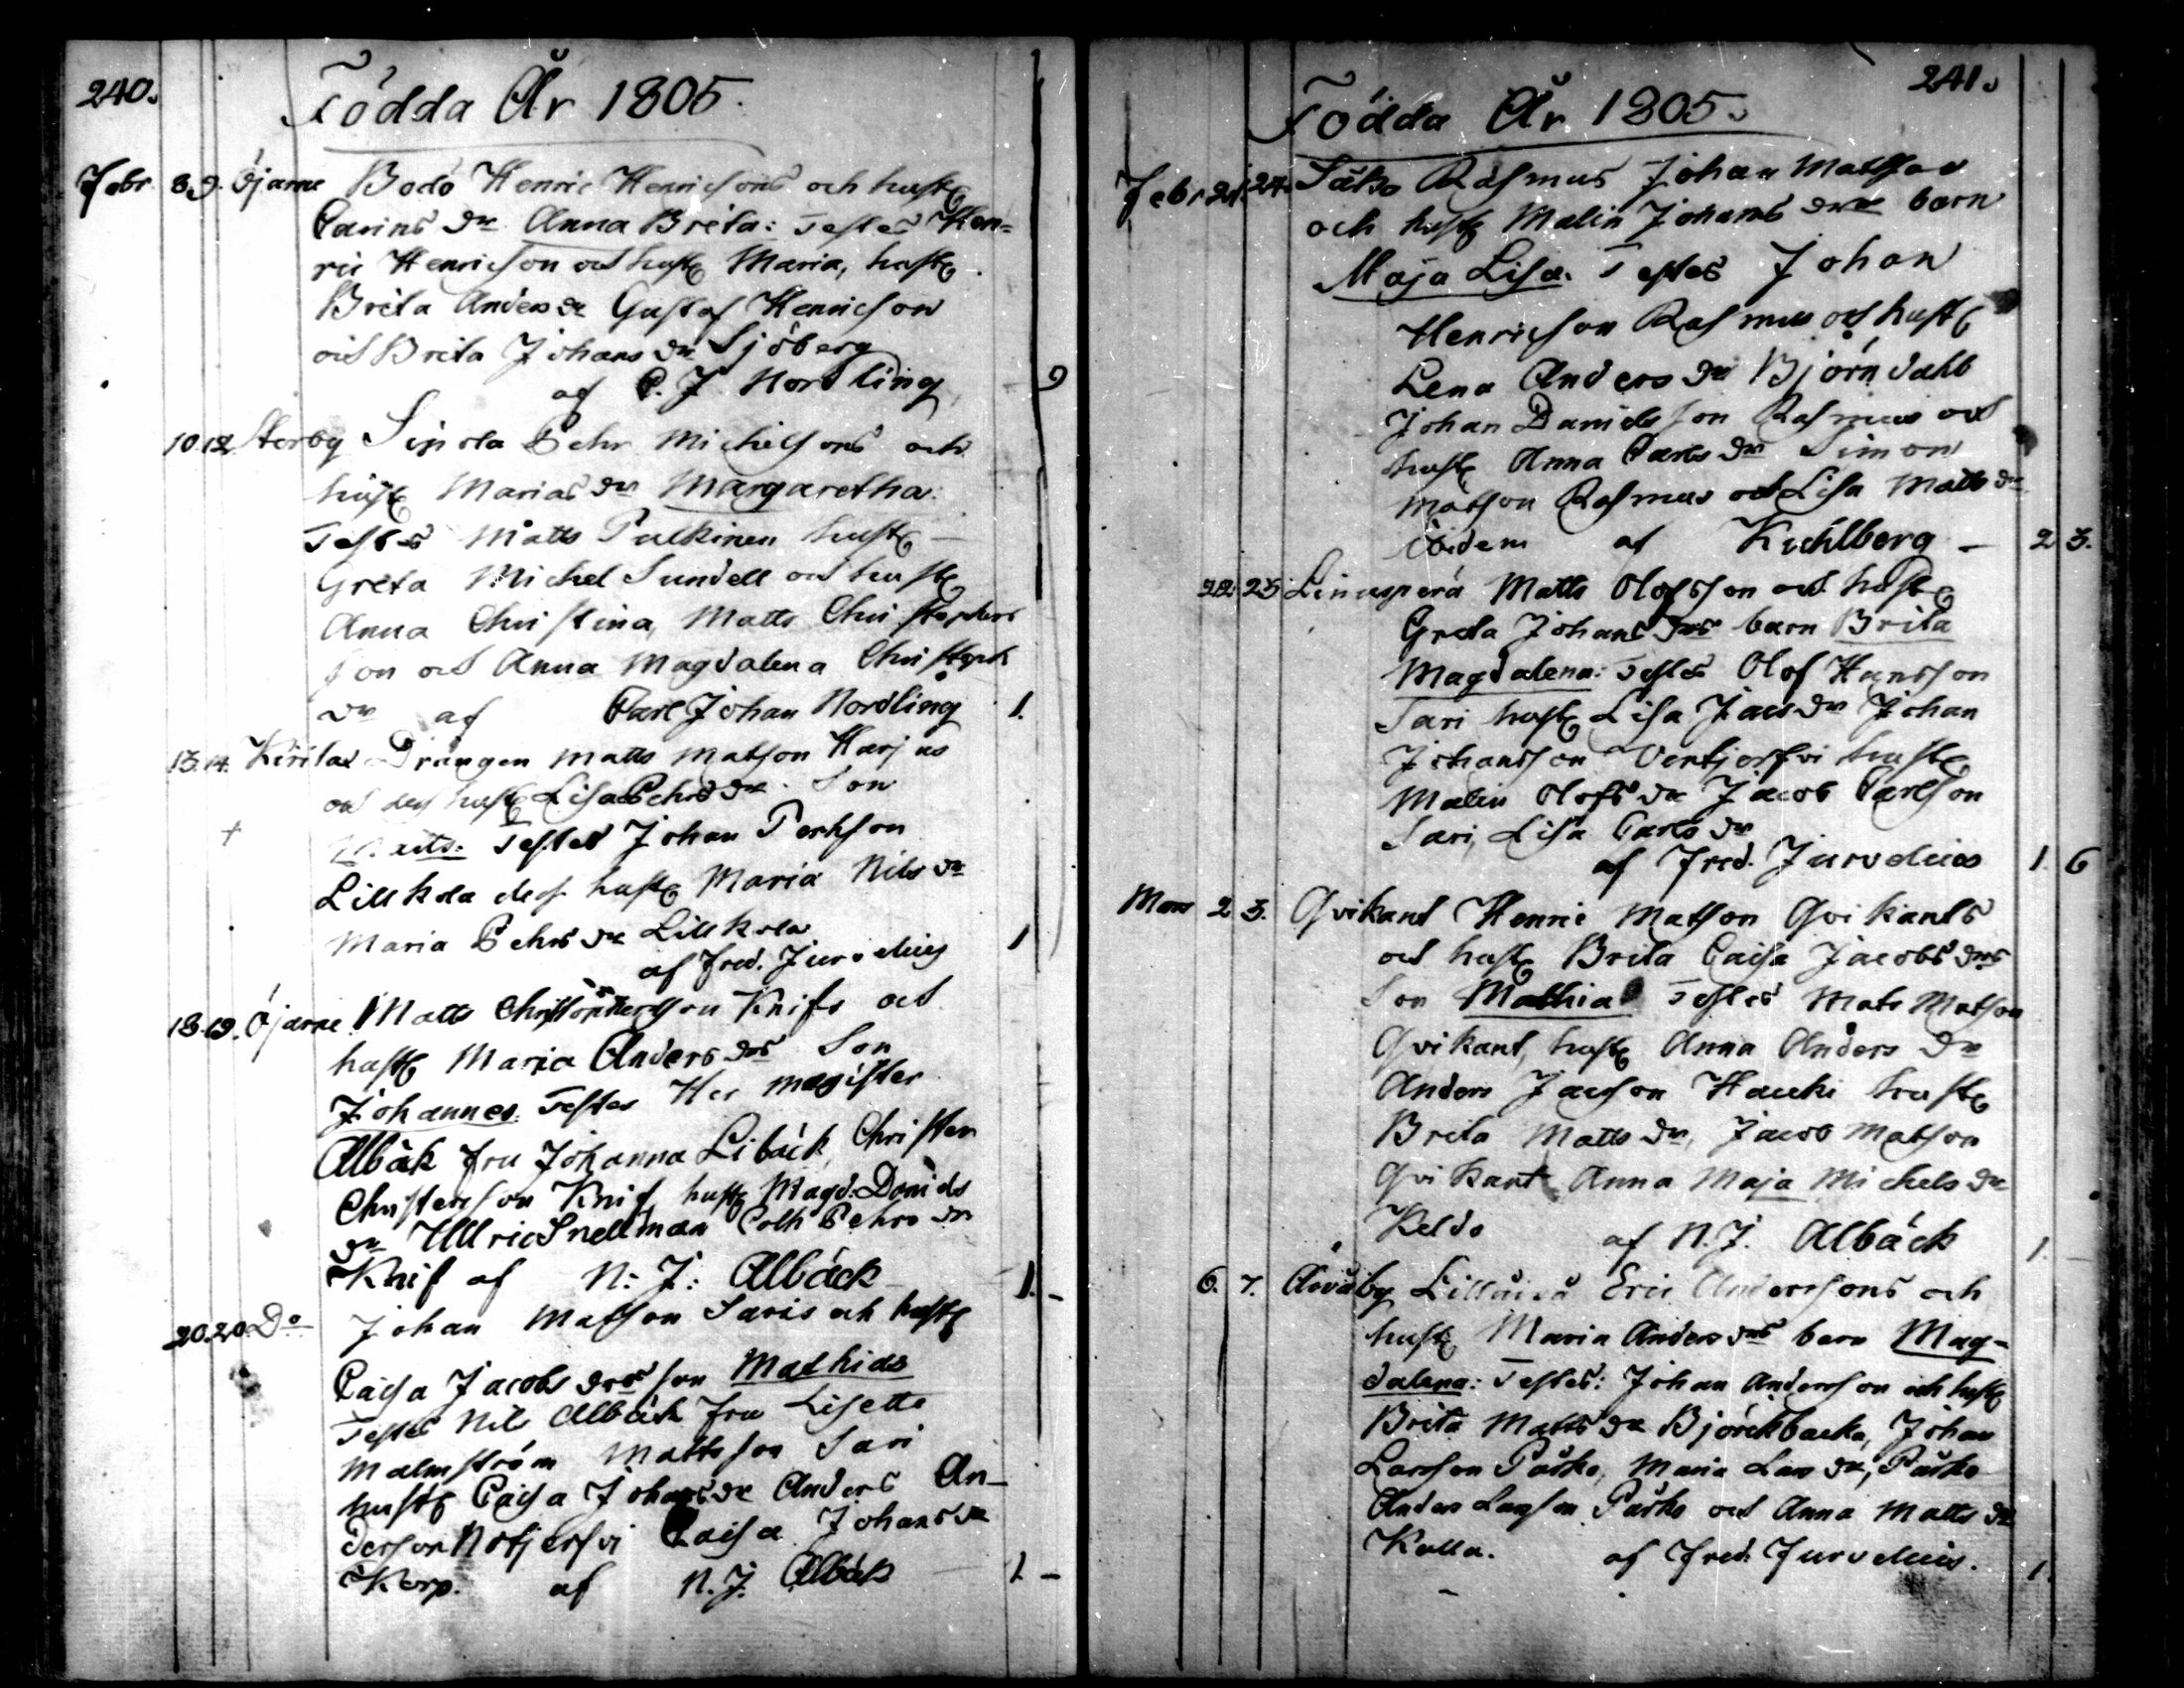 240.
Födda År 1805.
Febr. 8. 9. Öjarne Bodö Henric Henricsons och hustr
Carins dr Anna Brita: Testes Hen=
ric Henricson och hustr Maria, hustr
Brita Anders dr Gustaf Henricson
och Brita Johans dr Sjöberg
af C. J. Nordling 9
10. 12. Storby Sipola Pehr Michelsons och
hustr Marias dr Margaretha:
Testes Matts Pulkinen hustr
Greta Michel Sundell och hustr
Anna Christina, Matts Christophers
son och Anna Magdalena Christoph
dr af Carl Johan Nordling 1.
13. 14. Kirilax Drängen Matts Matson Harjus
och des hustr Lisa Pehrs dr. Son
Matts: Testes Johan Perhson
Lillkola des hustr Maria Nils dr
Maria Pehrs dr Lillkola
af Fred. Jurvelius 1
18. 19. Öjarne Matts Christopherson Knifs och
hustr Maria Anders drs Son
Johannes. Testes Her Magister
Albäk fru Johanna Libäck, Christer
Christerson Knif hustr Magd: Daniels
dr Ullric Snellman Cath Pehrs dr
Knif af N: J: Albäck 1. -
20. 20. Do Johan Matson Saris och hustr
Caisa Jacobs drs son Mathias
Testes Nils Albäck fru Lisette
Malmström Mattsson Sari
hustr Caisa Johans dr Anders An-
derson Notjerfvi Caisa Johans dr
Korp. af N. J. Albäck 1 -
241.
Födda År 1805.
Febr. 21. 24. Säkö Rasmus Johan Matsson
och hustr Malin Johans drs barn
Maja Lisa. Testes Johan
Henricson Rasmus och hustr
Lena Anders dr Björndahl
Johan Danielsson Rasmus och
hustr Anna Carls dr Simon
Matson Rasmus och Lisa Matts dr
ibidem af Kuhlberg - 2 3.
22. 23. Linusperä Matts Olofsson och hustr
Greta Johans drs barn Brita
Magdalena: Testes Olof Hansson
Sari hustr Lisa Jacs dr Johan
Johansson Ventjerfvi hustr
Malin Olofs dr Jacob Carlson
Sari, Lisa Carls dr
af Fred. Jurvelius 1. 6
Mars 2 3. Qvikant Henric Matson Qvikants
och hustr Brita Caisa Jacobs drs
Son Mathias Testes Mats Matson
Qvikant, hustr Anna Anders dr
Anders Jacson Hauki hustr
Brita Matts dr, Jacob Matson
Qvikant Anna Maja Michels dr
Keldo af N. J. Albäck 1.
6. 7. Åvåby Eric Anderssons och
hustr Maria Anders drs barn Mag-
dalena: Testes: Johan Andersson och hustr
Brita Matts dr Björckbacka, Johan
Larsson Påskö, Maria Lars dr, Påskö
Anders Larsson Påskö och Anna Matts dr
Kalla. af Fred: Jurvelius. 1.